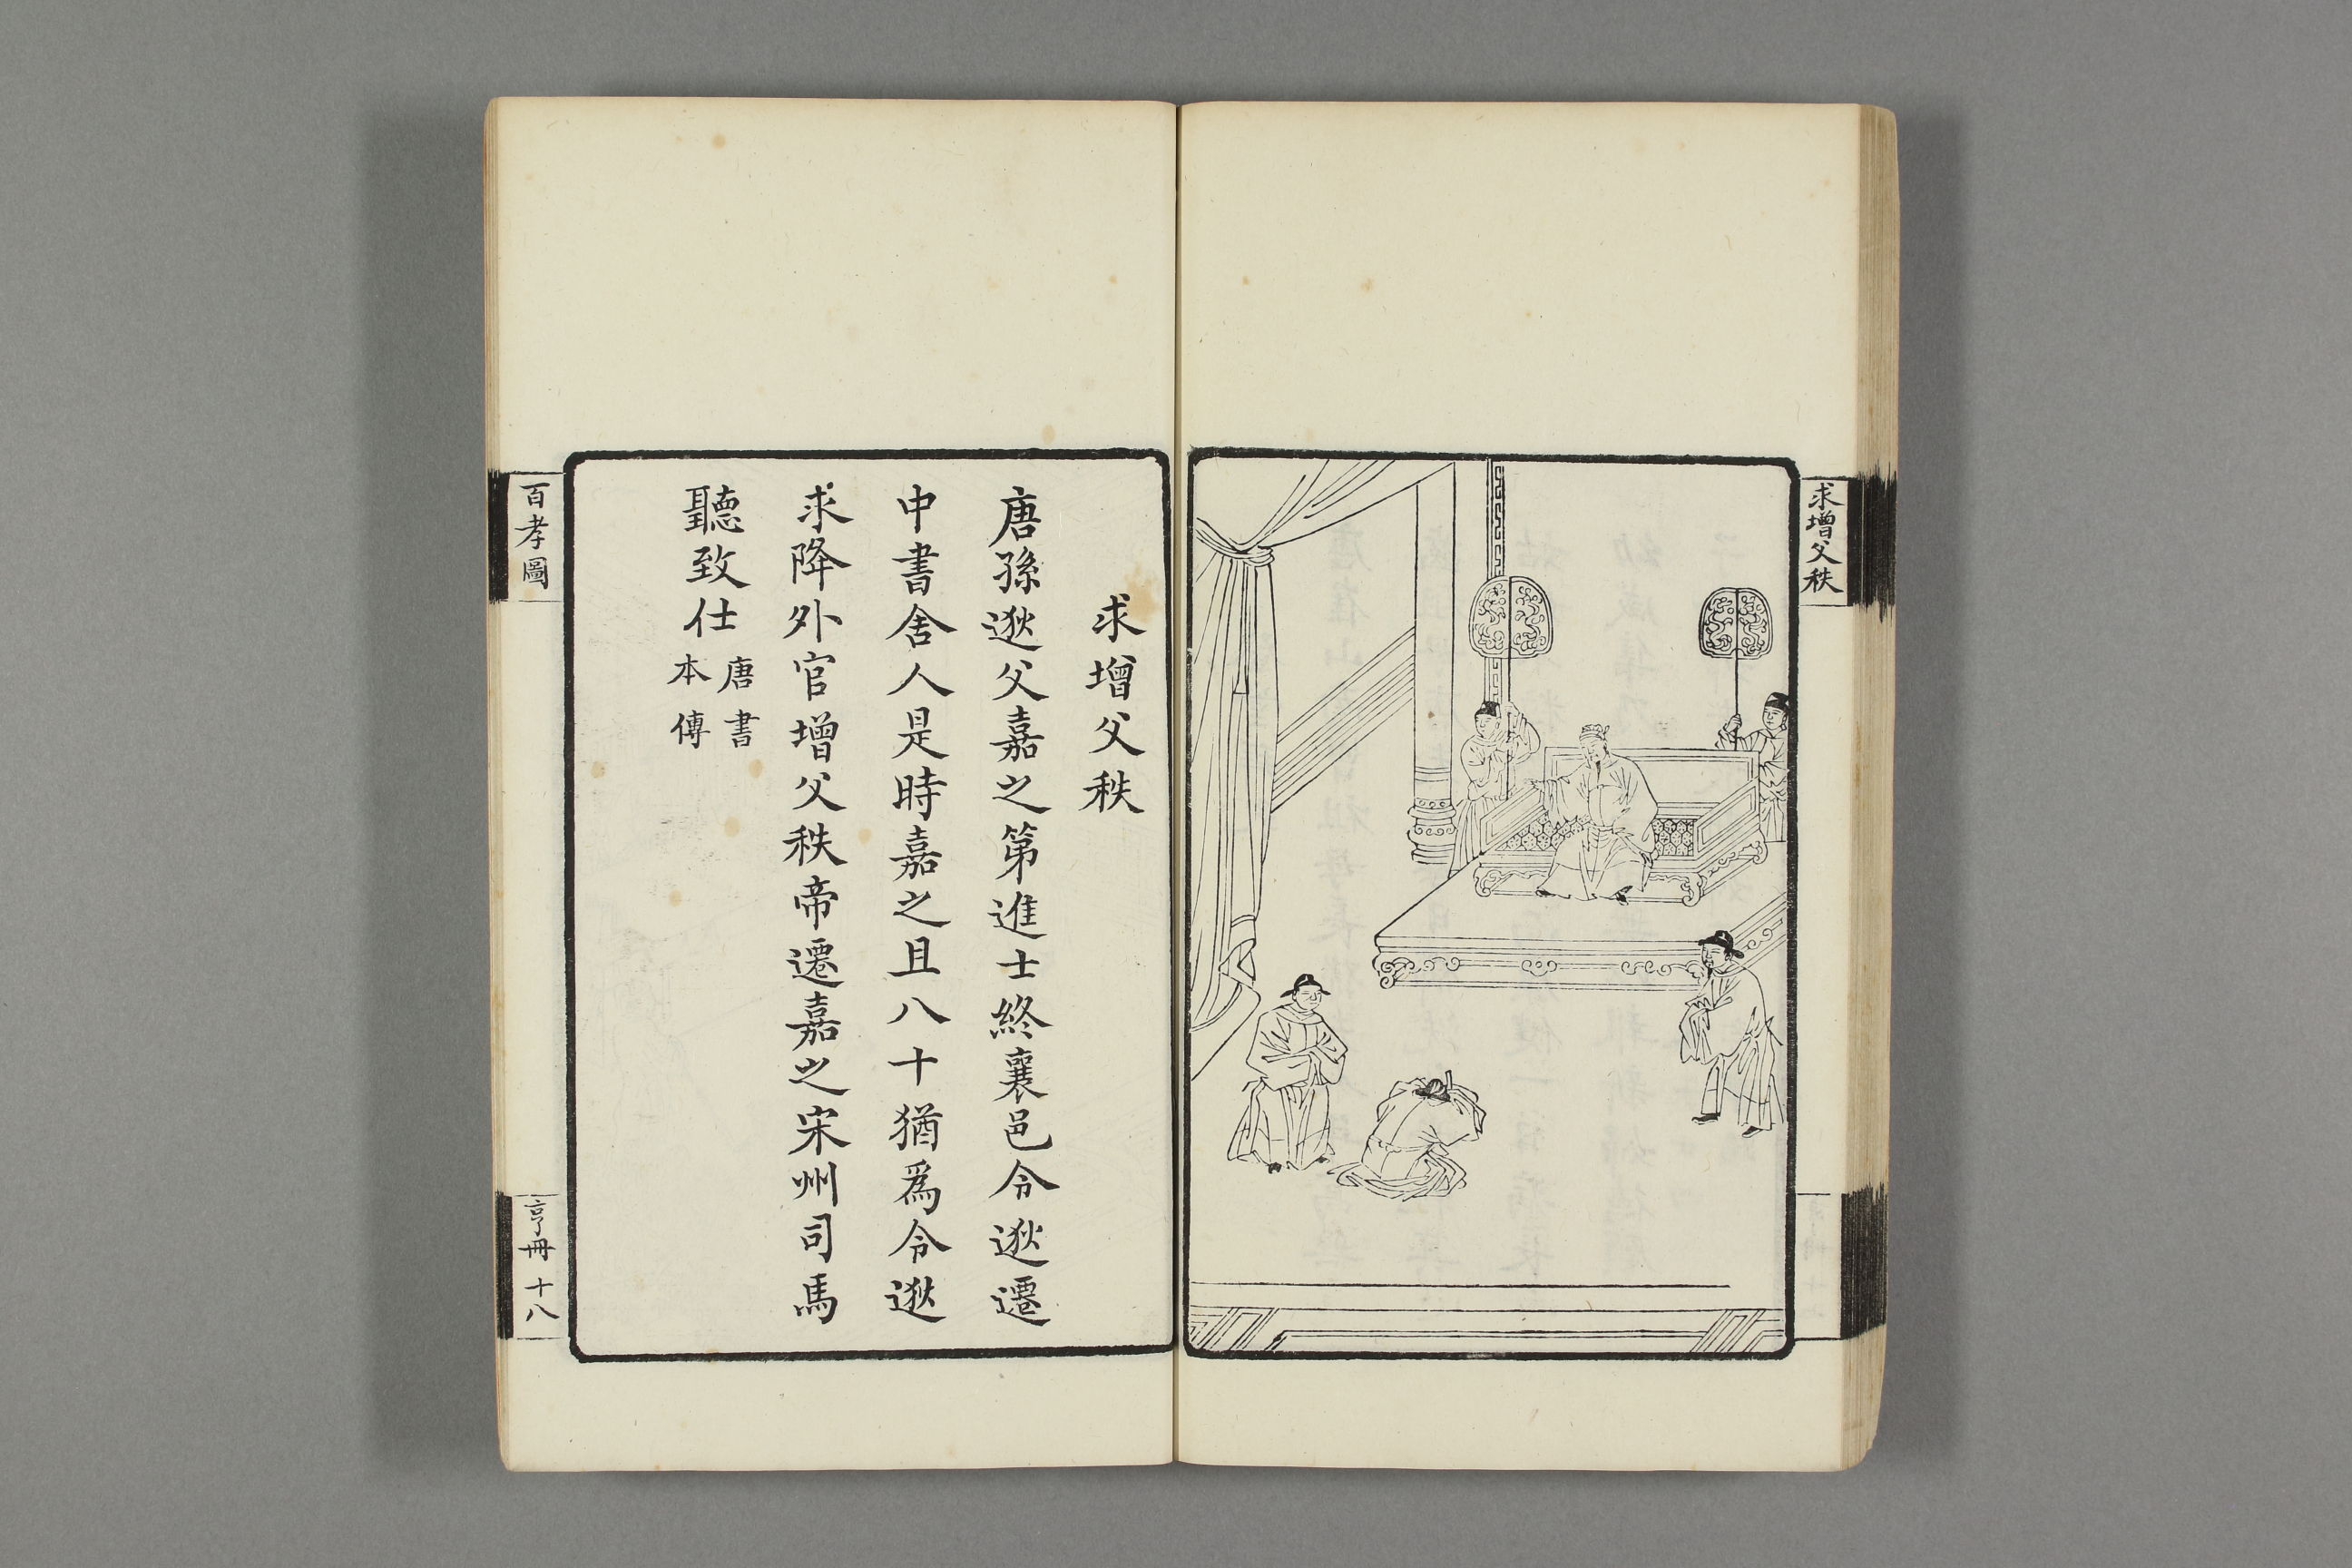 求增父秩
求增父秩
唐孫逖父嘉之第進士終襄邑令逖遷
中書舍人是時嘉之且八十猶爲令逖
求降外官增父秩帝遷嘉之宋州司馬
聽致仕
唐書
本傳
百孝圖
亨冊 十八